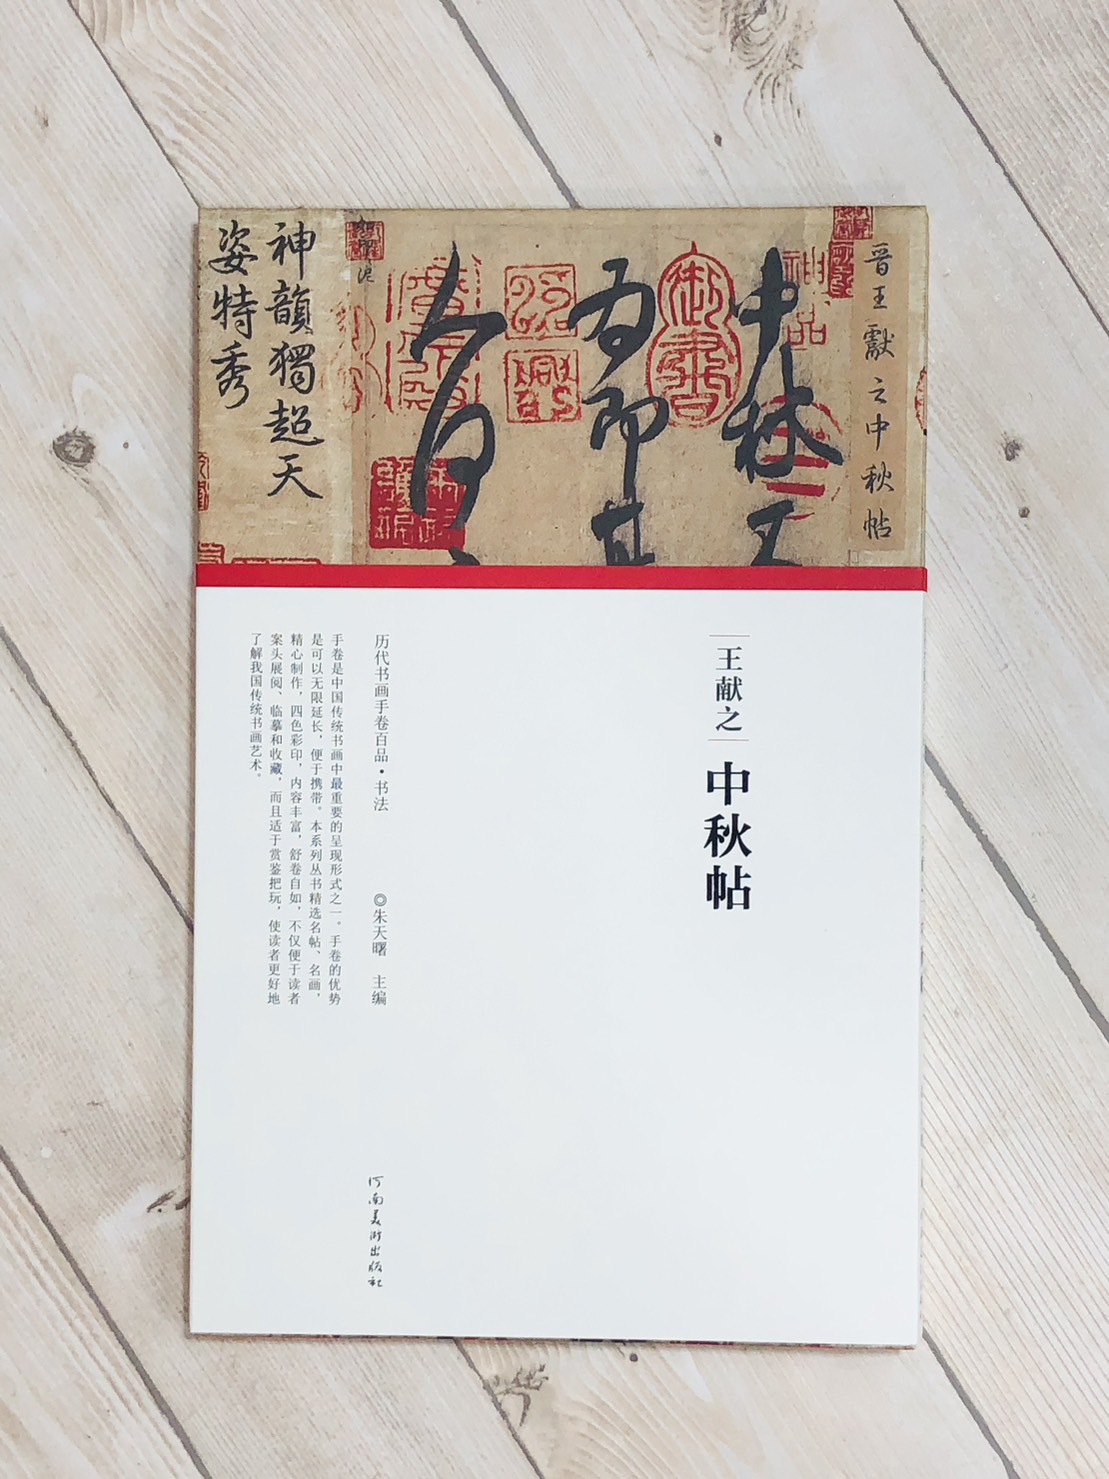 晋王獻之中秋帖
中秋
為即甚
神韻獨超天
姿特秀
王献之
中秋帖
历代书画手卷百品·书法 ◎朱天曙 主编
手卷是中国传统书画中最重要的呈现形式之一。手卷的优势
是可以无限延长，便于携带。本系列丛书精选名帖、名画，
精心制作，四色彩印，内容丰富，舒卷自如，不仅便于读者
案头展阅、临摹和收藏，而且适于赏鉴把玩，使读者更好地
了解我国传统书画艺术。
河南美术出版社